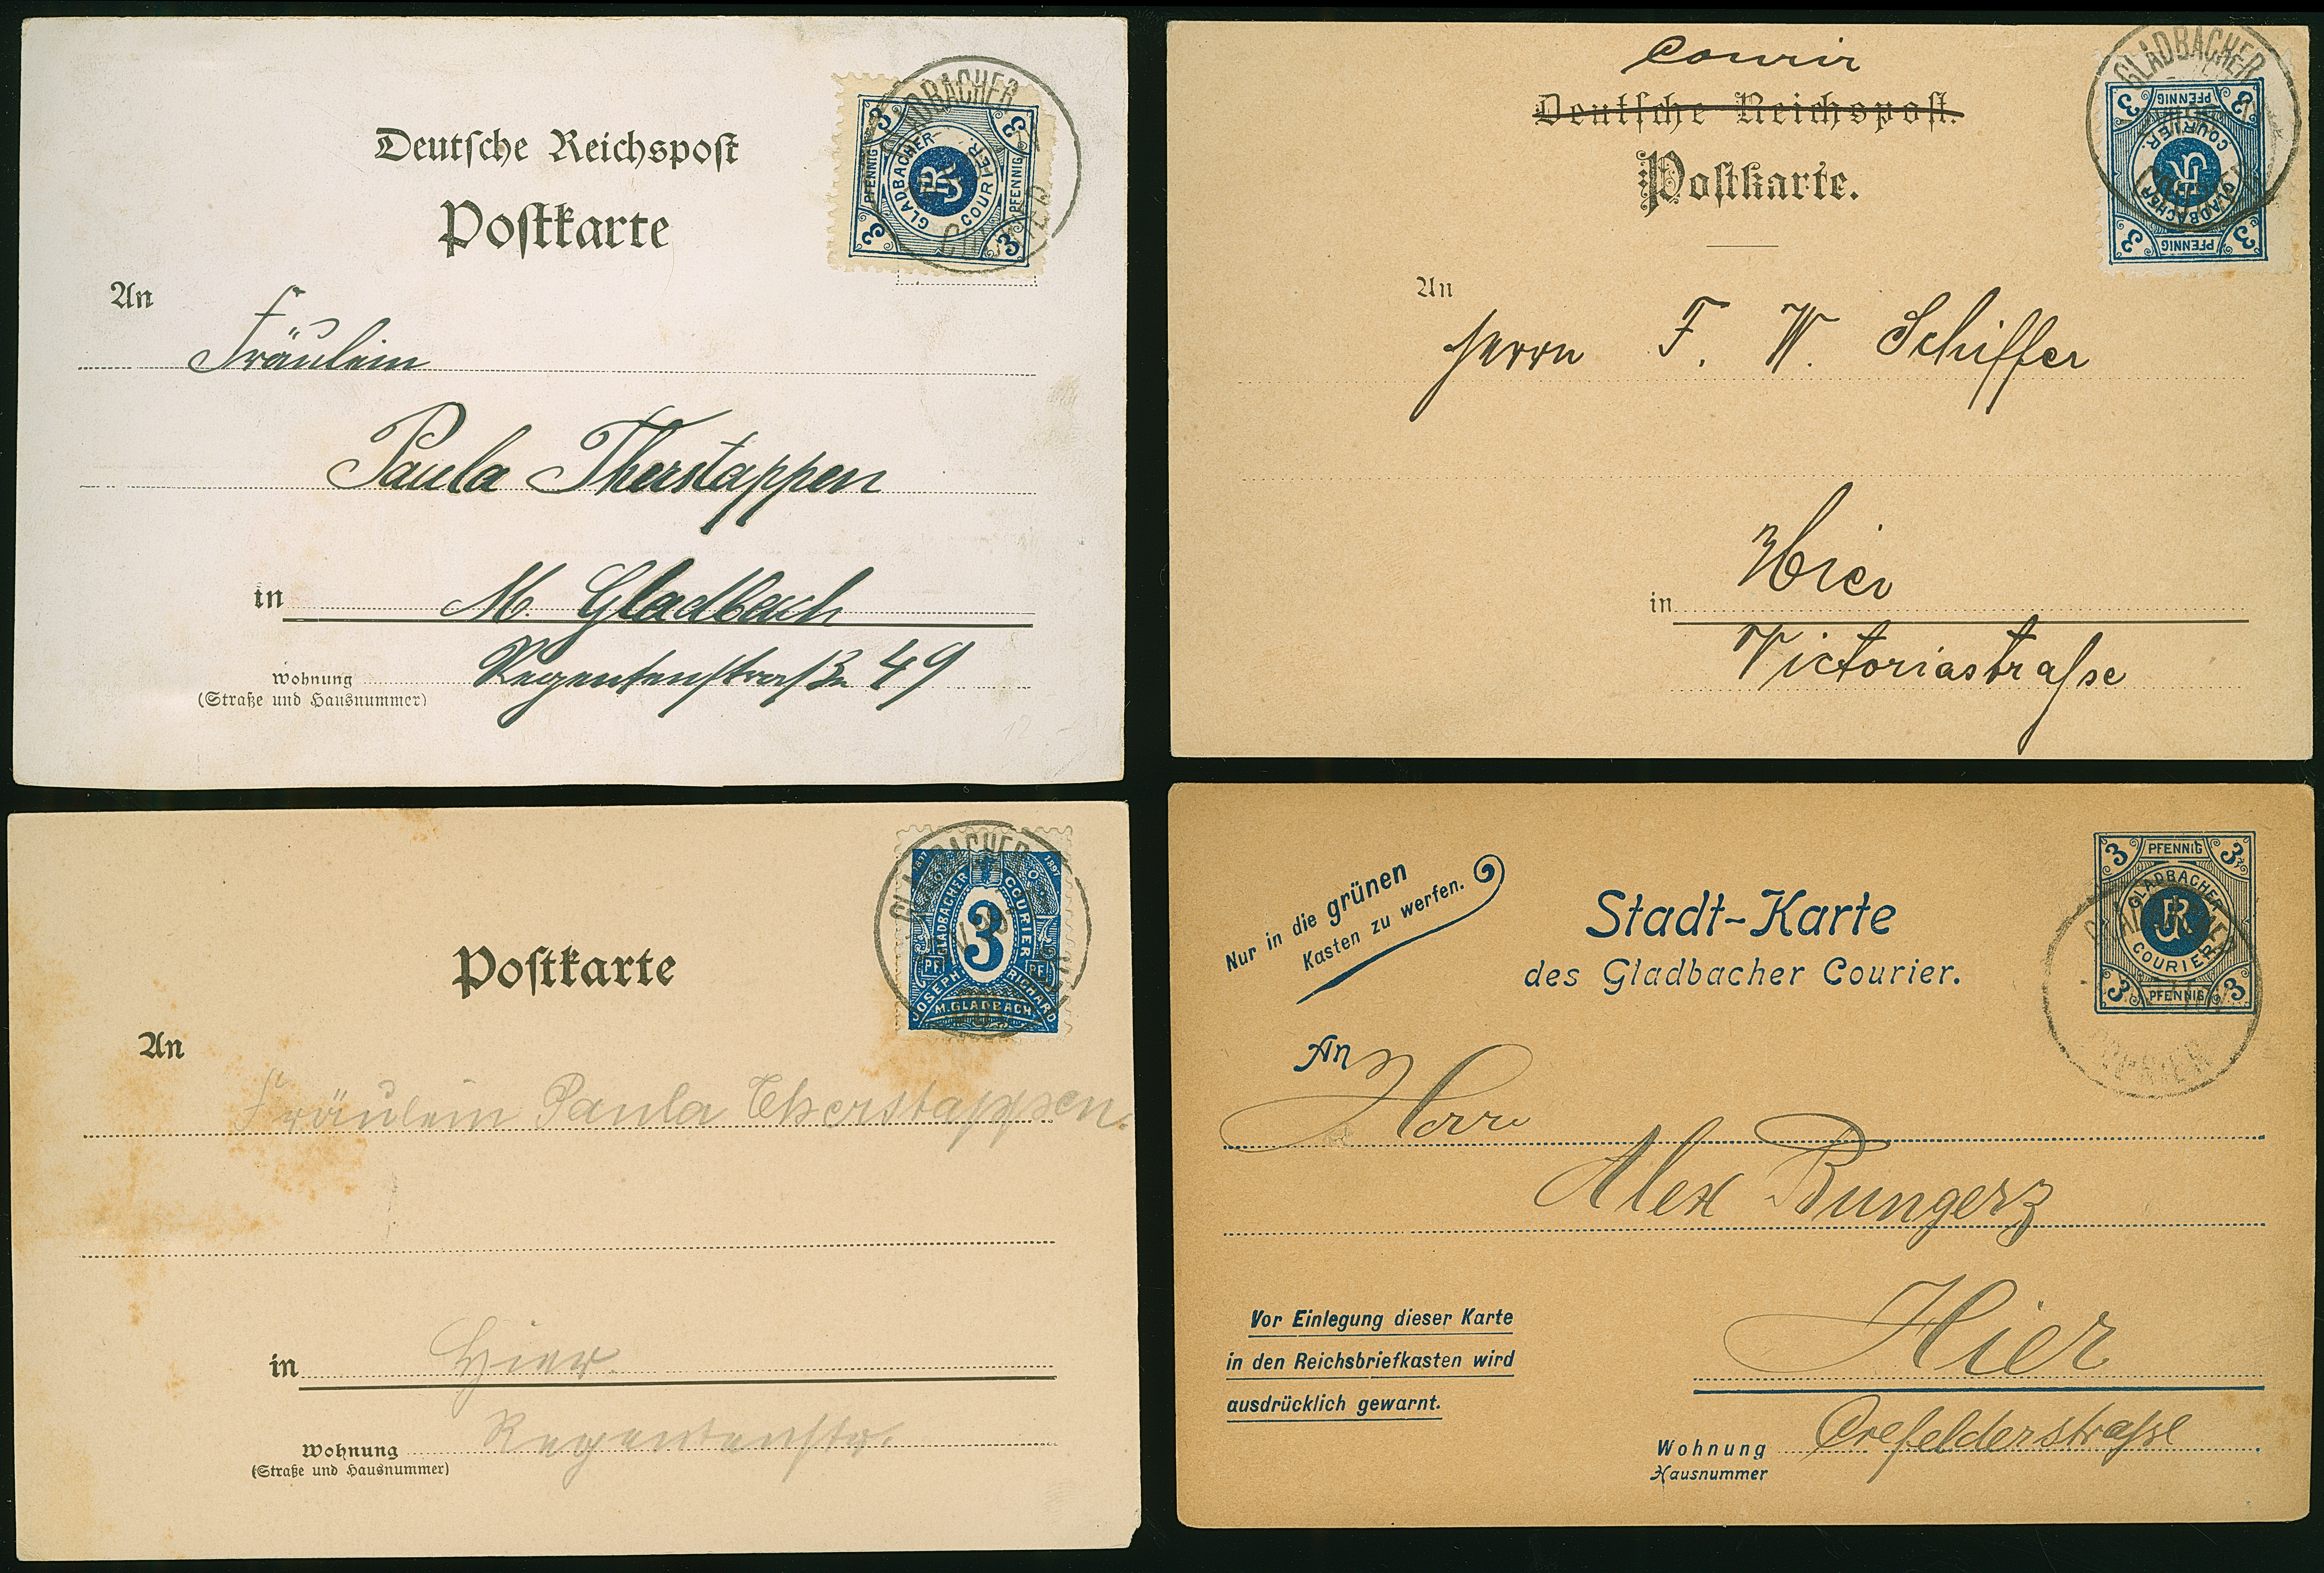 Deutsche Reichspost
Postkarte
3 PFENNIG 3
GLADBACHER COURIER.
3 PFENNIG 3
GLADBACHER
COURIER
An
Fräulein
Paula Therstappen
in M. Gladbach
Wohnung Regentenstraße 49
(Straße und Hausnummer)
12.-
Courir
Deutsche Reichspost.
Postkarte.
3 PFENNIG 3
GLADBACHER COURIER.
3 PFENNIG 3
GLADBACHER
An
Herrn F. W. Schiffer
in Hier
Victoriastrasse
Postkarte
1897
GLADBACHER COURIER
3
PF. PF.
JOSEPH RICHARD
M.GLADBACH.
GLADBACHER
An
Fräulein Paula Therstappen.
in Hier.
Wohnung Regentenstr.
(Straße und Hausnummer)
Nur in die grünen
Kasten zu werfen.
Stadt-Karte
des Gladbacher Courier.
3 PFENNIG 3
GLADBACHER
JR
COURIER
3 PFENNIG 3
COURIER
An
Herrn
Alex Bungerz
Vor Einlegung dieser Karte
in den Reichsbriefkasten wird
ausdrücklich gewarnt.
Hier
Wohnung Crefelderstrasse
Hausnummer